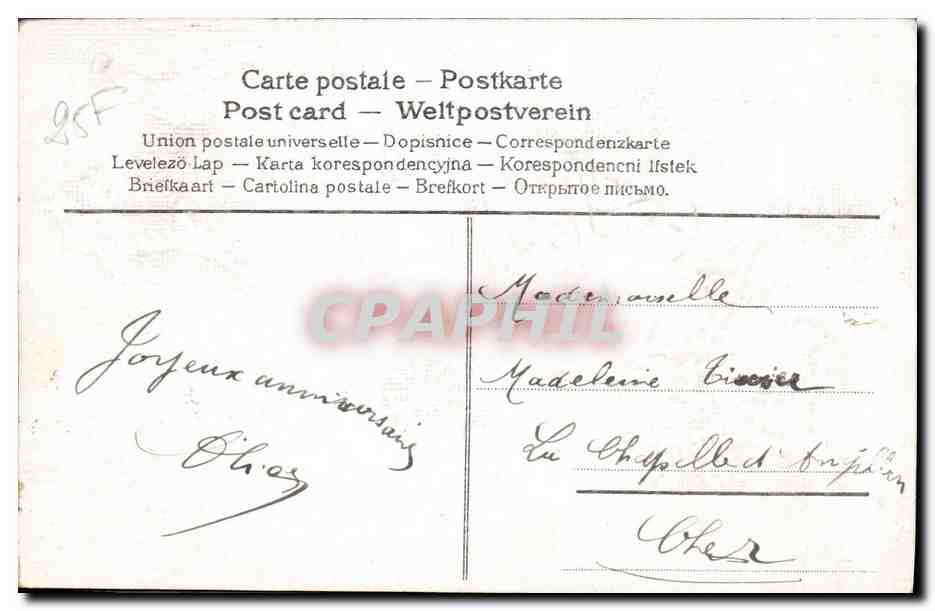 25F
Carte postale – Postkarte
Post card — Weltpostverein
Union postale universelle – Dopisnice – Correspondenzkarte
Levelező-Lap – Karta korespondencyjna – Korespondencní lístek
Briefkaart – Cartolina postale – Brefkort – Открытое письмо.
CPAPHIL
Joyeux anniversaire
Mademoiselle
Madeleine
La Chapelle d'Angillon
Cher